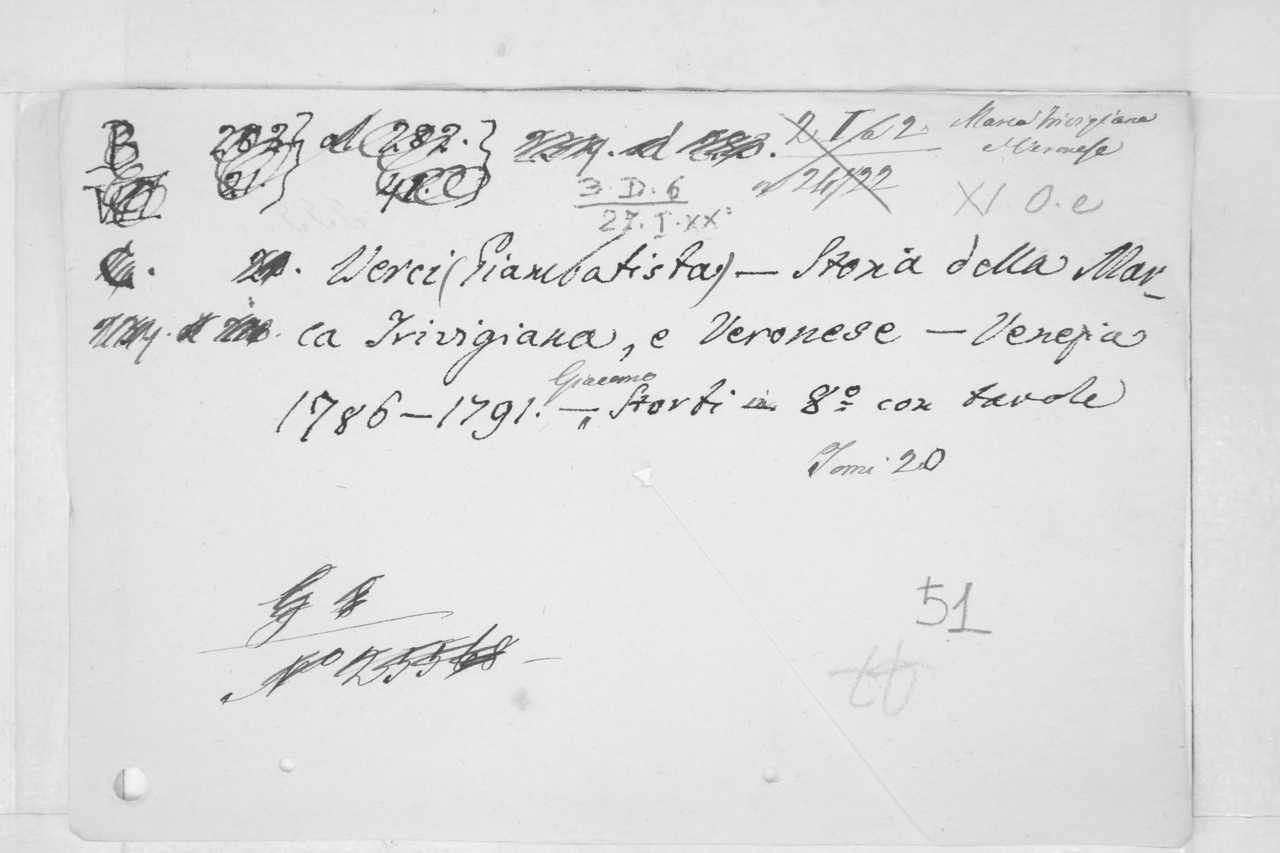 B 262 } al 282. }
21. } 41. }
2. I 62
Marca Trivigiana
e Veronese
3. D. 6
27. I. XX
al 21/22
XI. O. e
C. Verci (Giambatista) — Storia della Mar-
ca Trivigiana, e Veronese — Venezia
Giacomo
1786–1791. — Storti in 8º con tavole
Tomi 20
G 8
Nº 25568 –
51